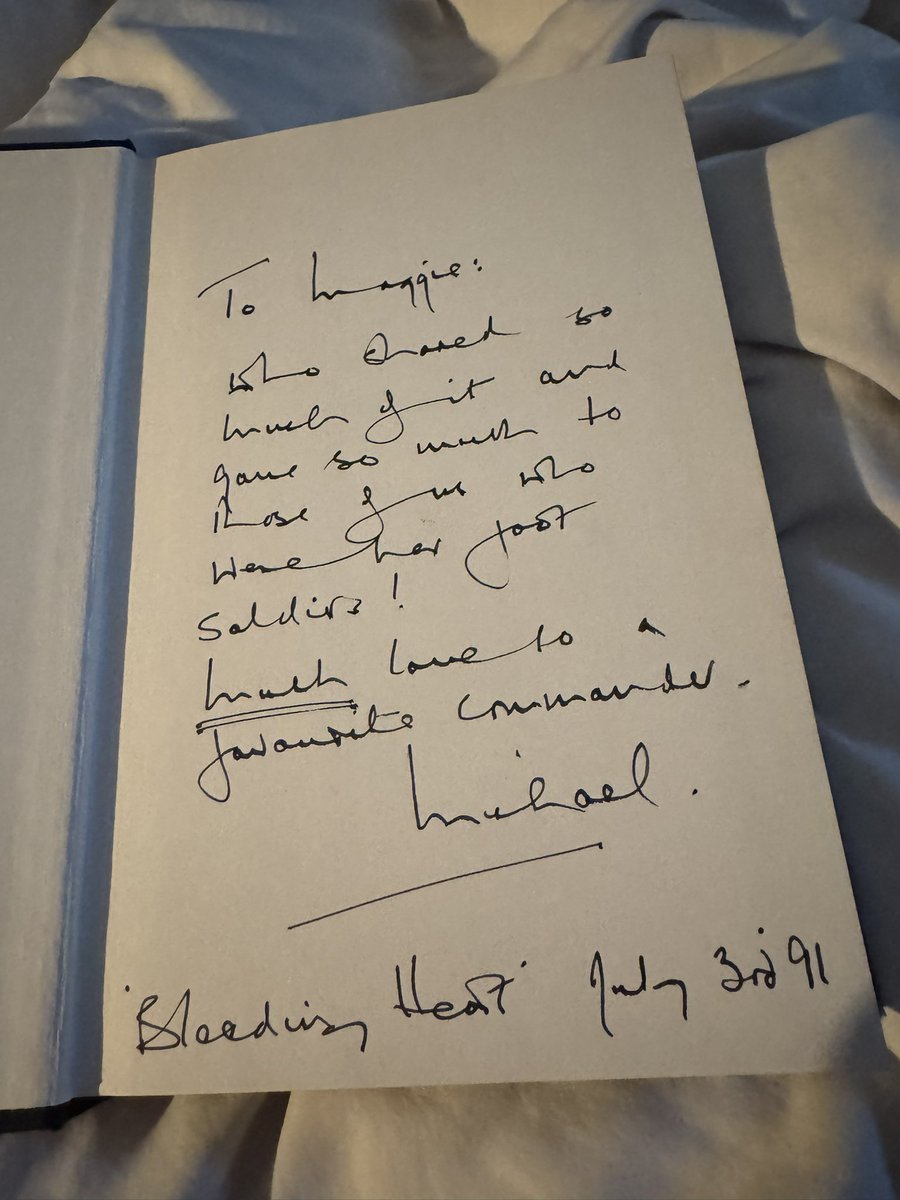 To Maggie:
who shared so
much of it and
gave so much to
those of us who
were her foot
soldiers!
Much love to a
favourite commander.
Michael.
'Bleeding Heart' July 3rd 91